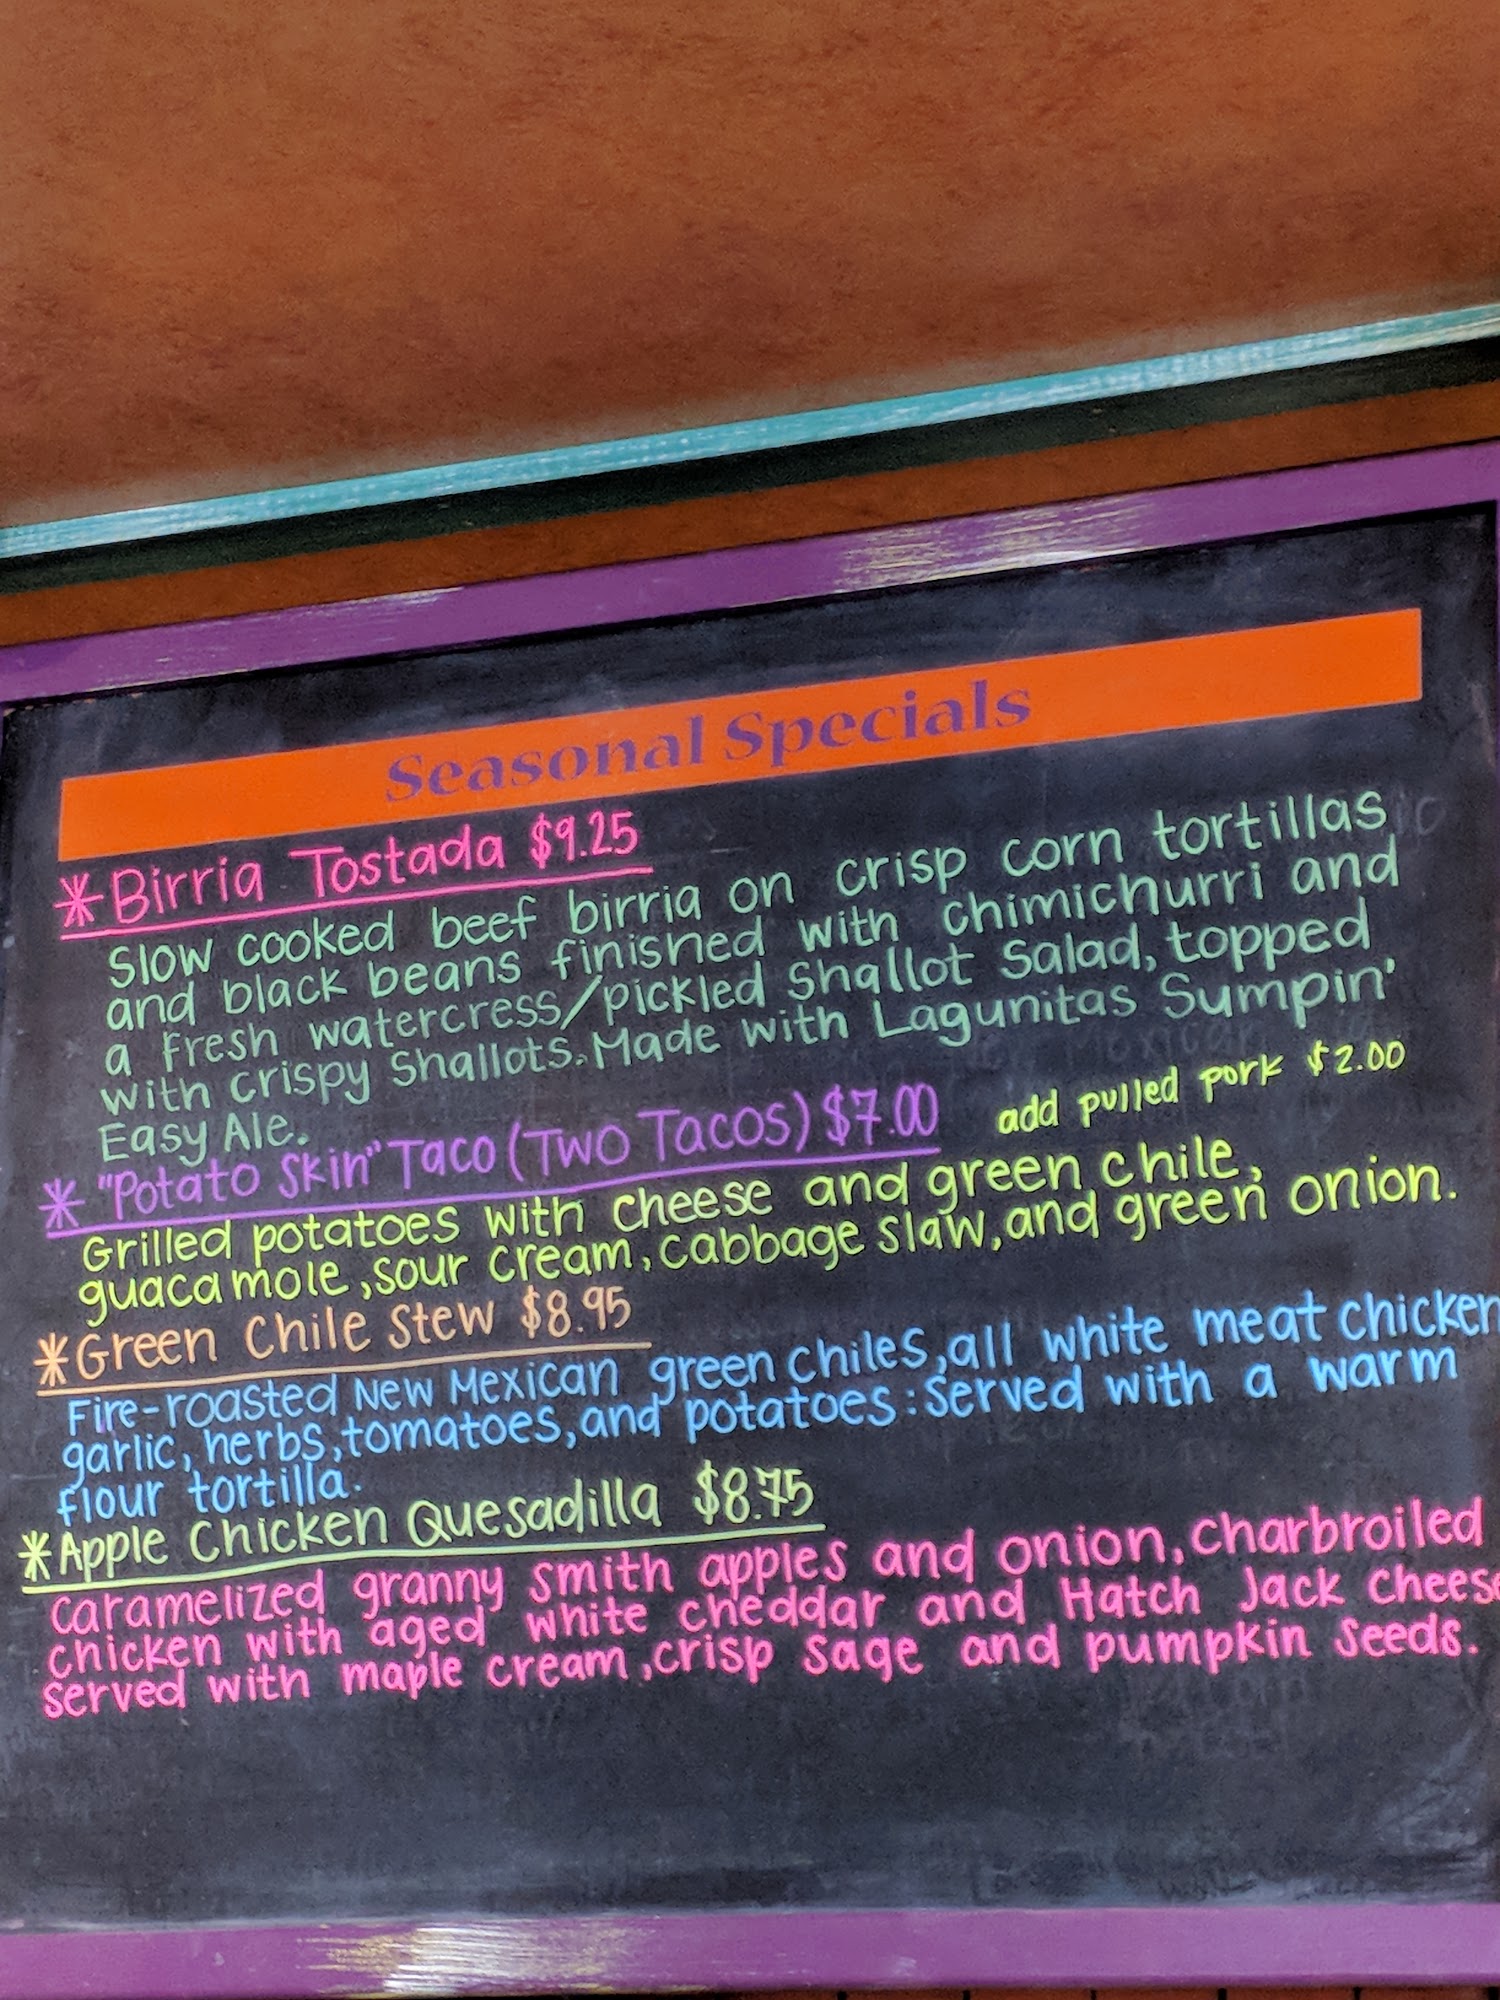 Seasonal Specials
*Birria Tostada $9.25
Slow cooked beef birria on crisp corn tortillas
and black beans finished with chimichurri and
a fresh watercress/pickled shallot salad, topped
with crispy shallots. Made with Lagunitas Sumpin'
Easy Ale.
* "Potato Skin" Taco (Two Tacos) $7.00 add pulled pork $2.00
Grilled potatoes with cheese and green chile,
guacamole, sour cream, cabbage slaw, and green onion.
*Green Chile Stew $8.95
Fire-roasted New Mexican green chiles, all white meat chicken
garlic, herbs, tomatoes, and potatoes: served with a warm
flour tortilla.
*Apple Chicken Quesadilla $8.75
Caramelized granny smith apples and onion, charbroiled
chicken with aged white cheddar and Hatch Jack Cheese
served with maple cream, crisp sage and pumpkin seeds.